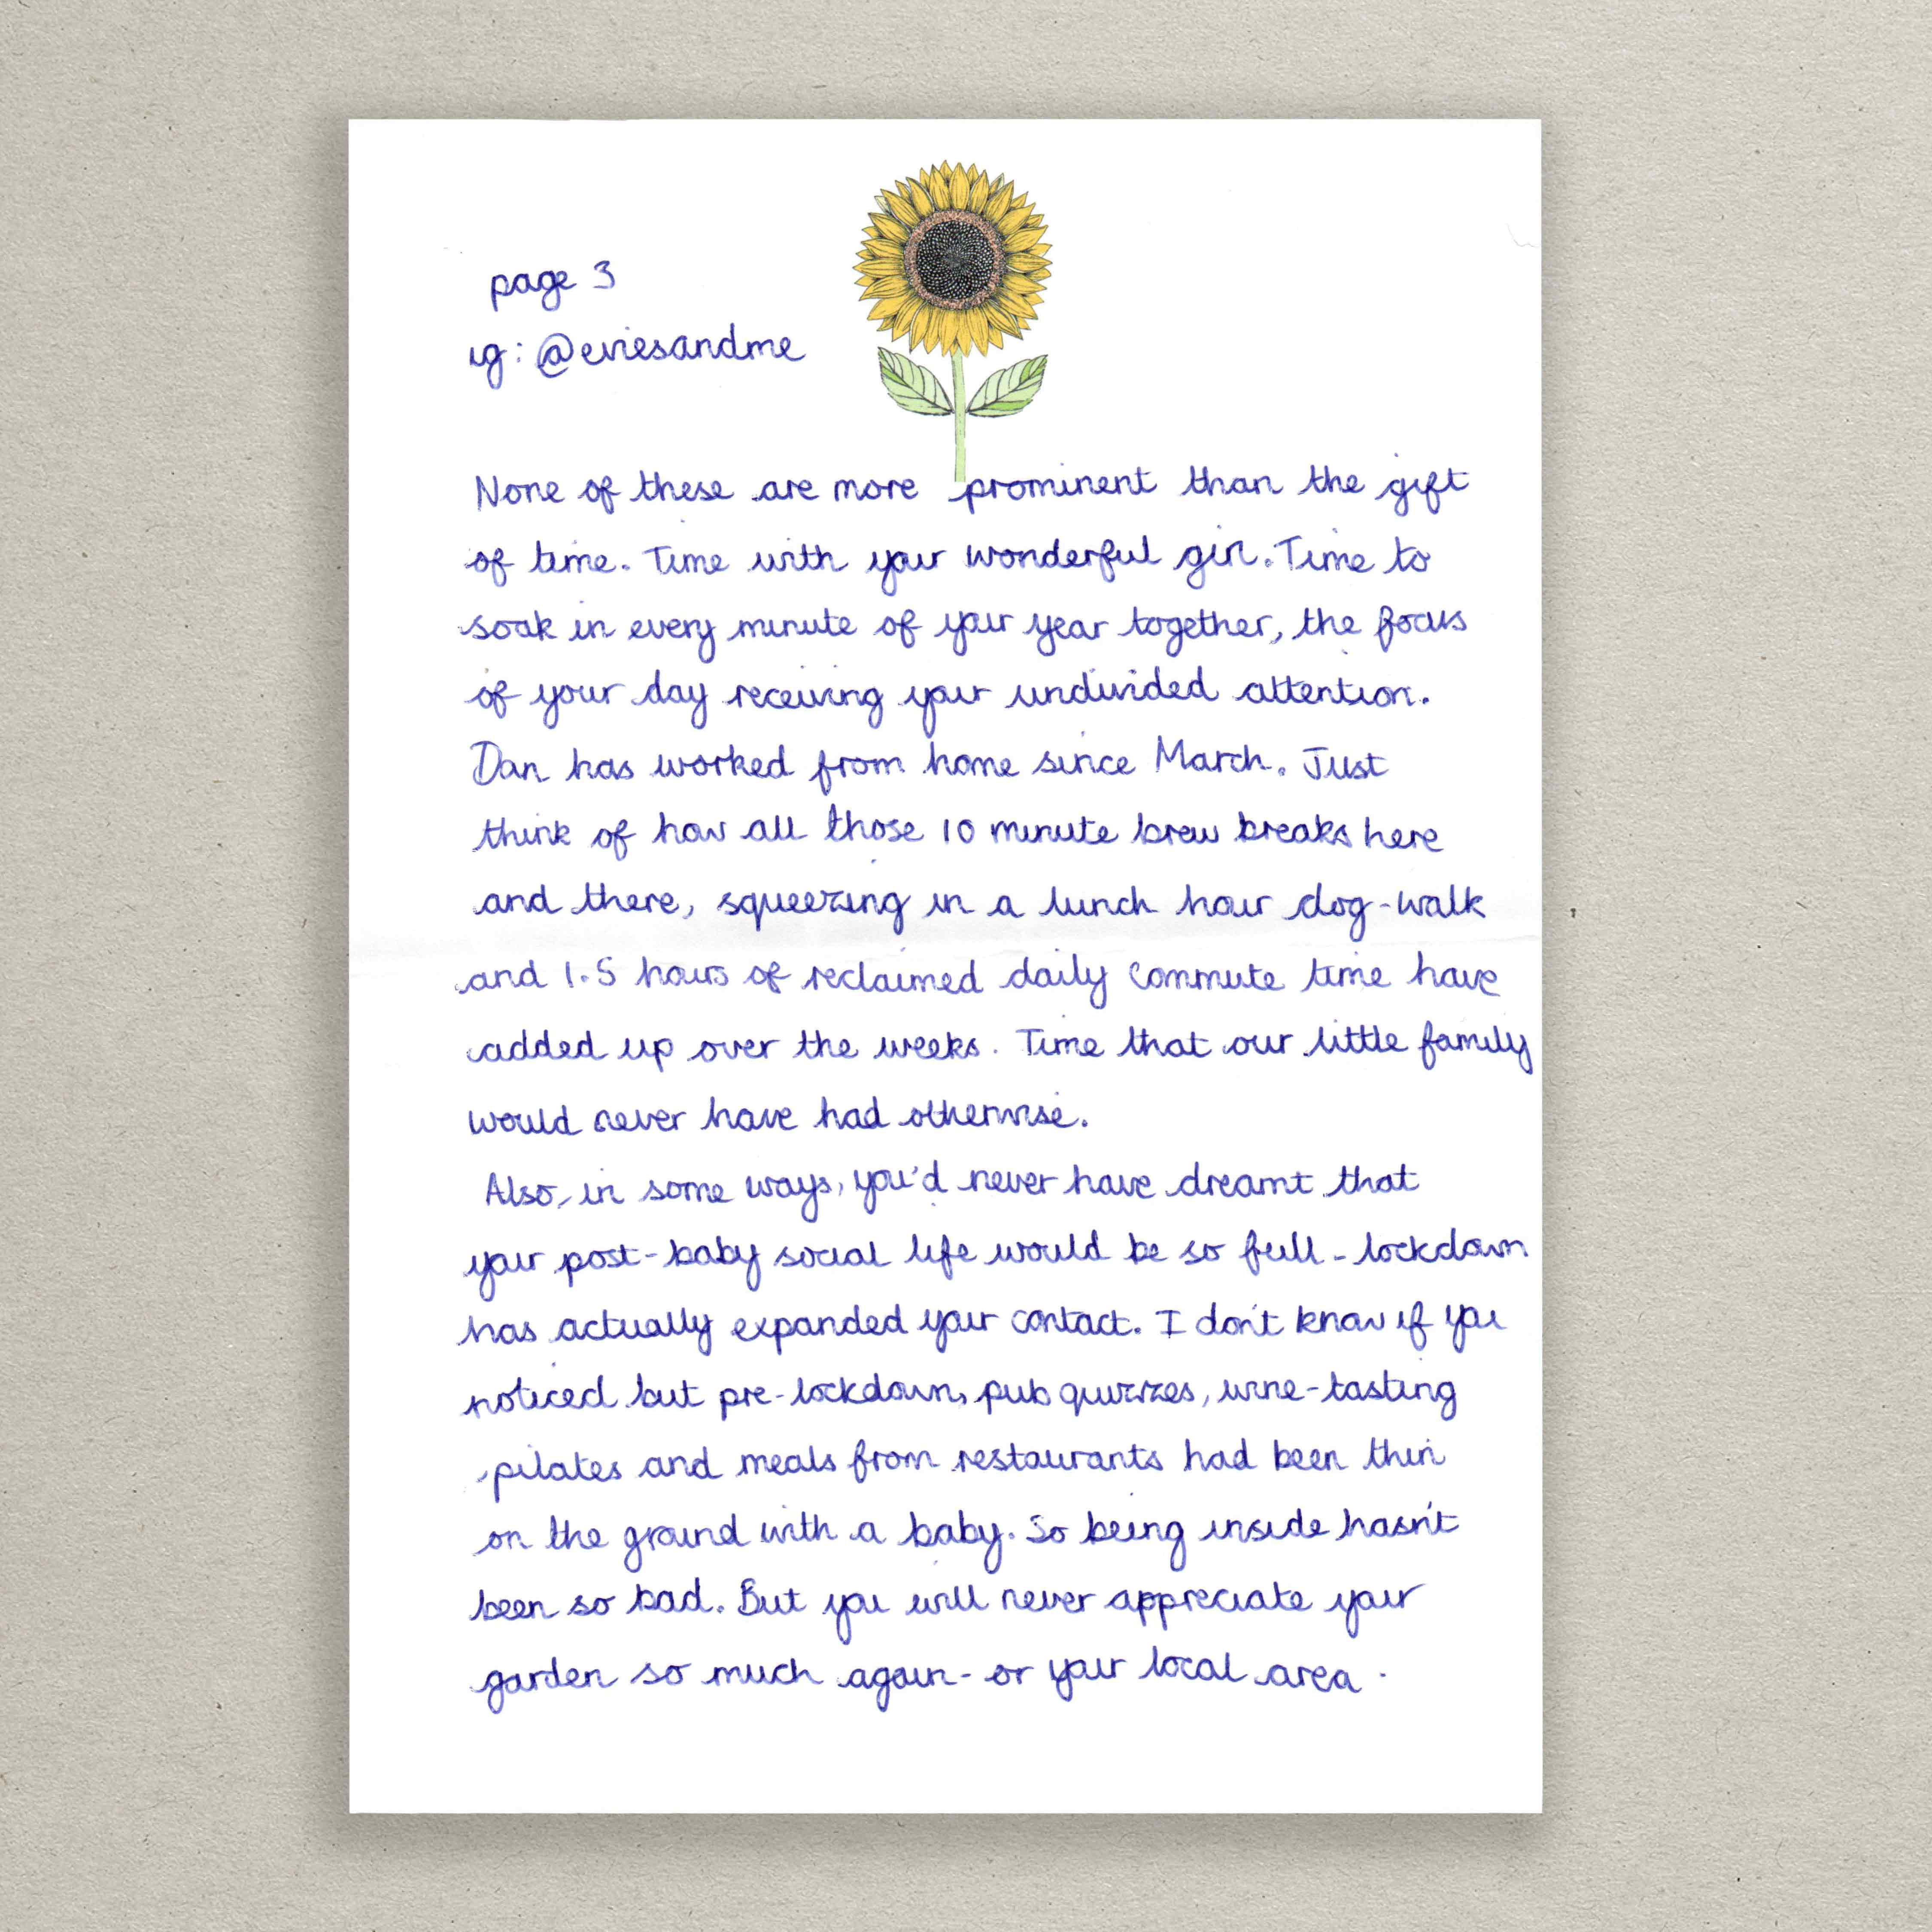 page 3
ig: @eviesandme
None of these are more prominent than the gift
of time. Time with your wonderful girl. Time to
soak in every minute of your year together, the focus
of your day receiving your undivided attention.
Dan has worked from home since March. Just
think of how all those 10 minute brew breaks here
and there, squeezing in a lunch hour dog-walk
and 1.5 hours of reclaimed daily commute time have
added up over the weeks. Time that our little family
would never have had otherwise.
Also, in some ways, you'd never have dreamt that
your post-baby social life would be so full - lockdown
has actually expanded your contact. I don't know if you
noticed but pre-lockdown, pub quizzes, wine-tasting
pilates and meals from restaurants had been thin
on the ground with a baby. So being inside hasn't
been so bad. But you will never appreciate your
garden so much again - or your local area.